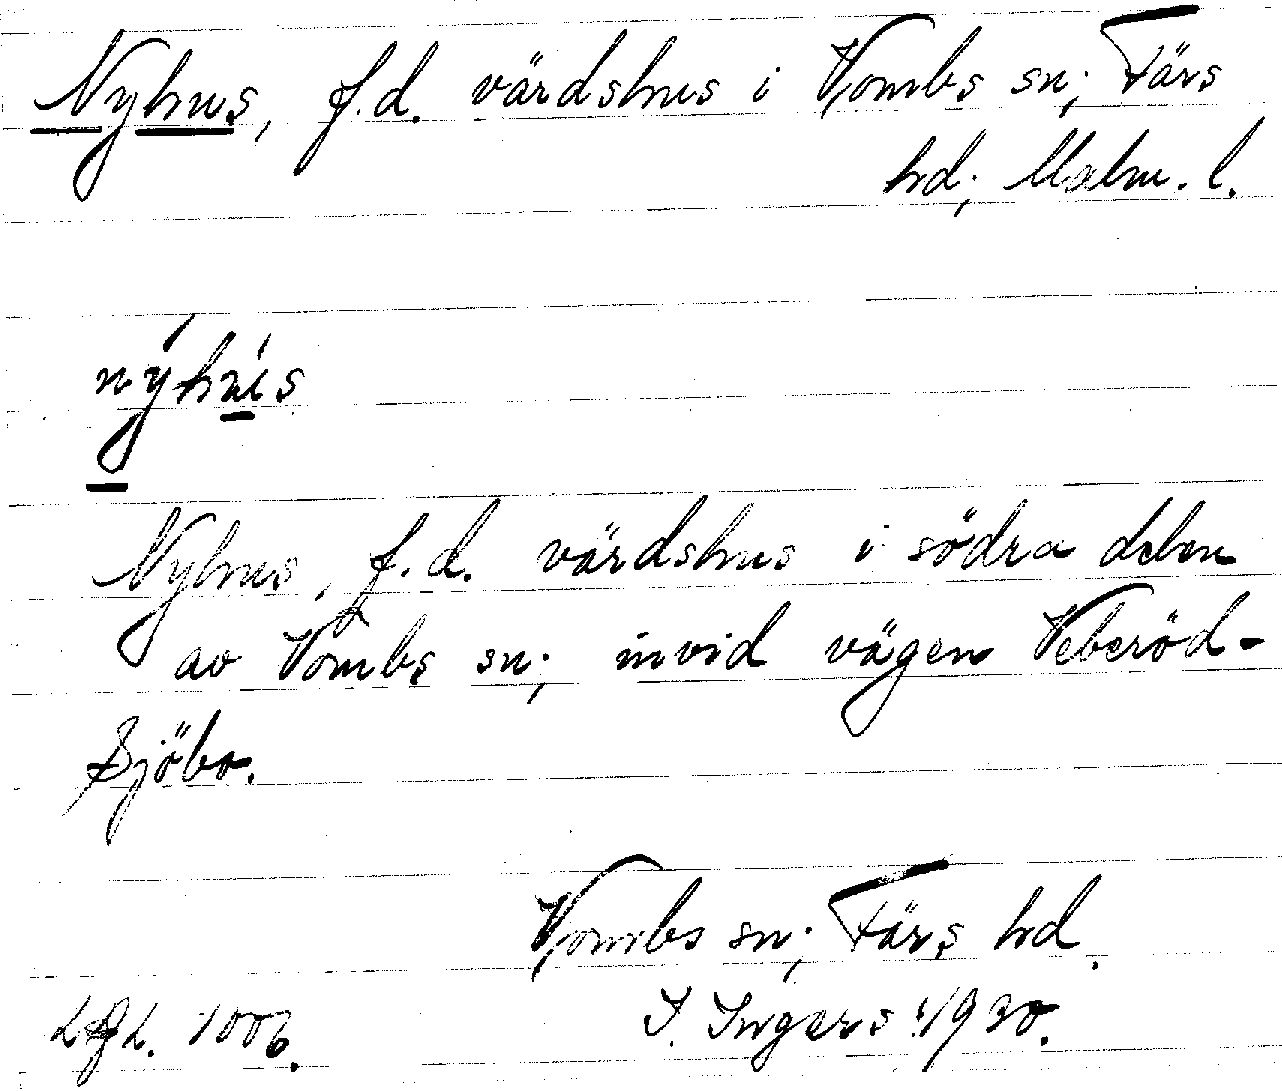 Nyhus, f.d. värdshus i Vombs sn; Färs
hd; Malm. l.
nýhús
Nyhus, f.d. värdshus i södra delen
av Vombs sn; invid vägen Veberöd-
Sjöbo.
Vombs sn; Färs hd.
I. Ingers 1930.
LGL. 1006.